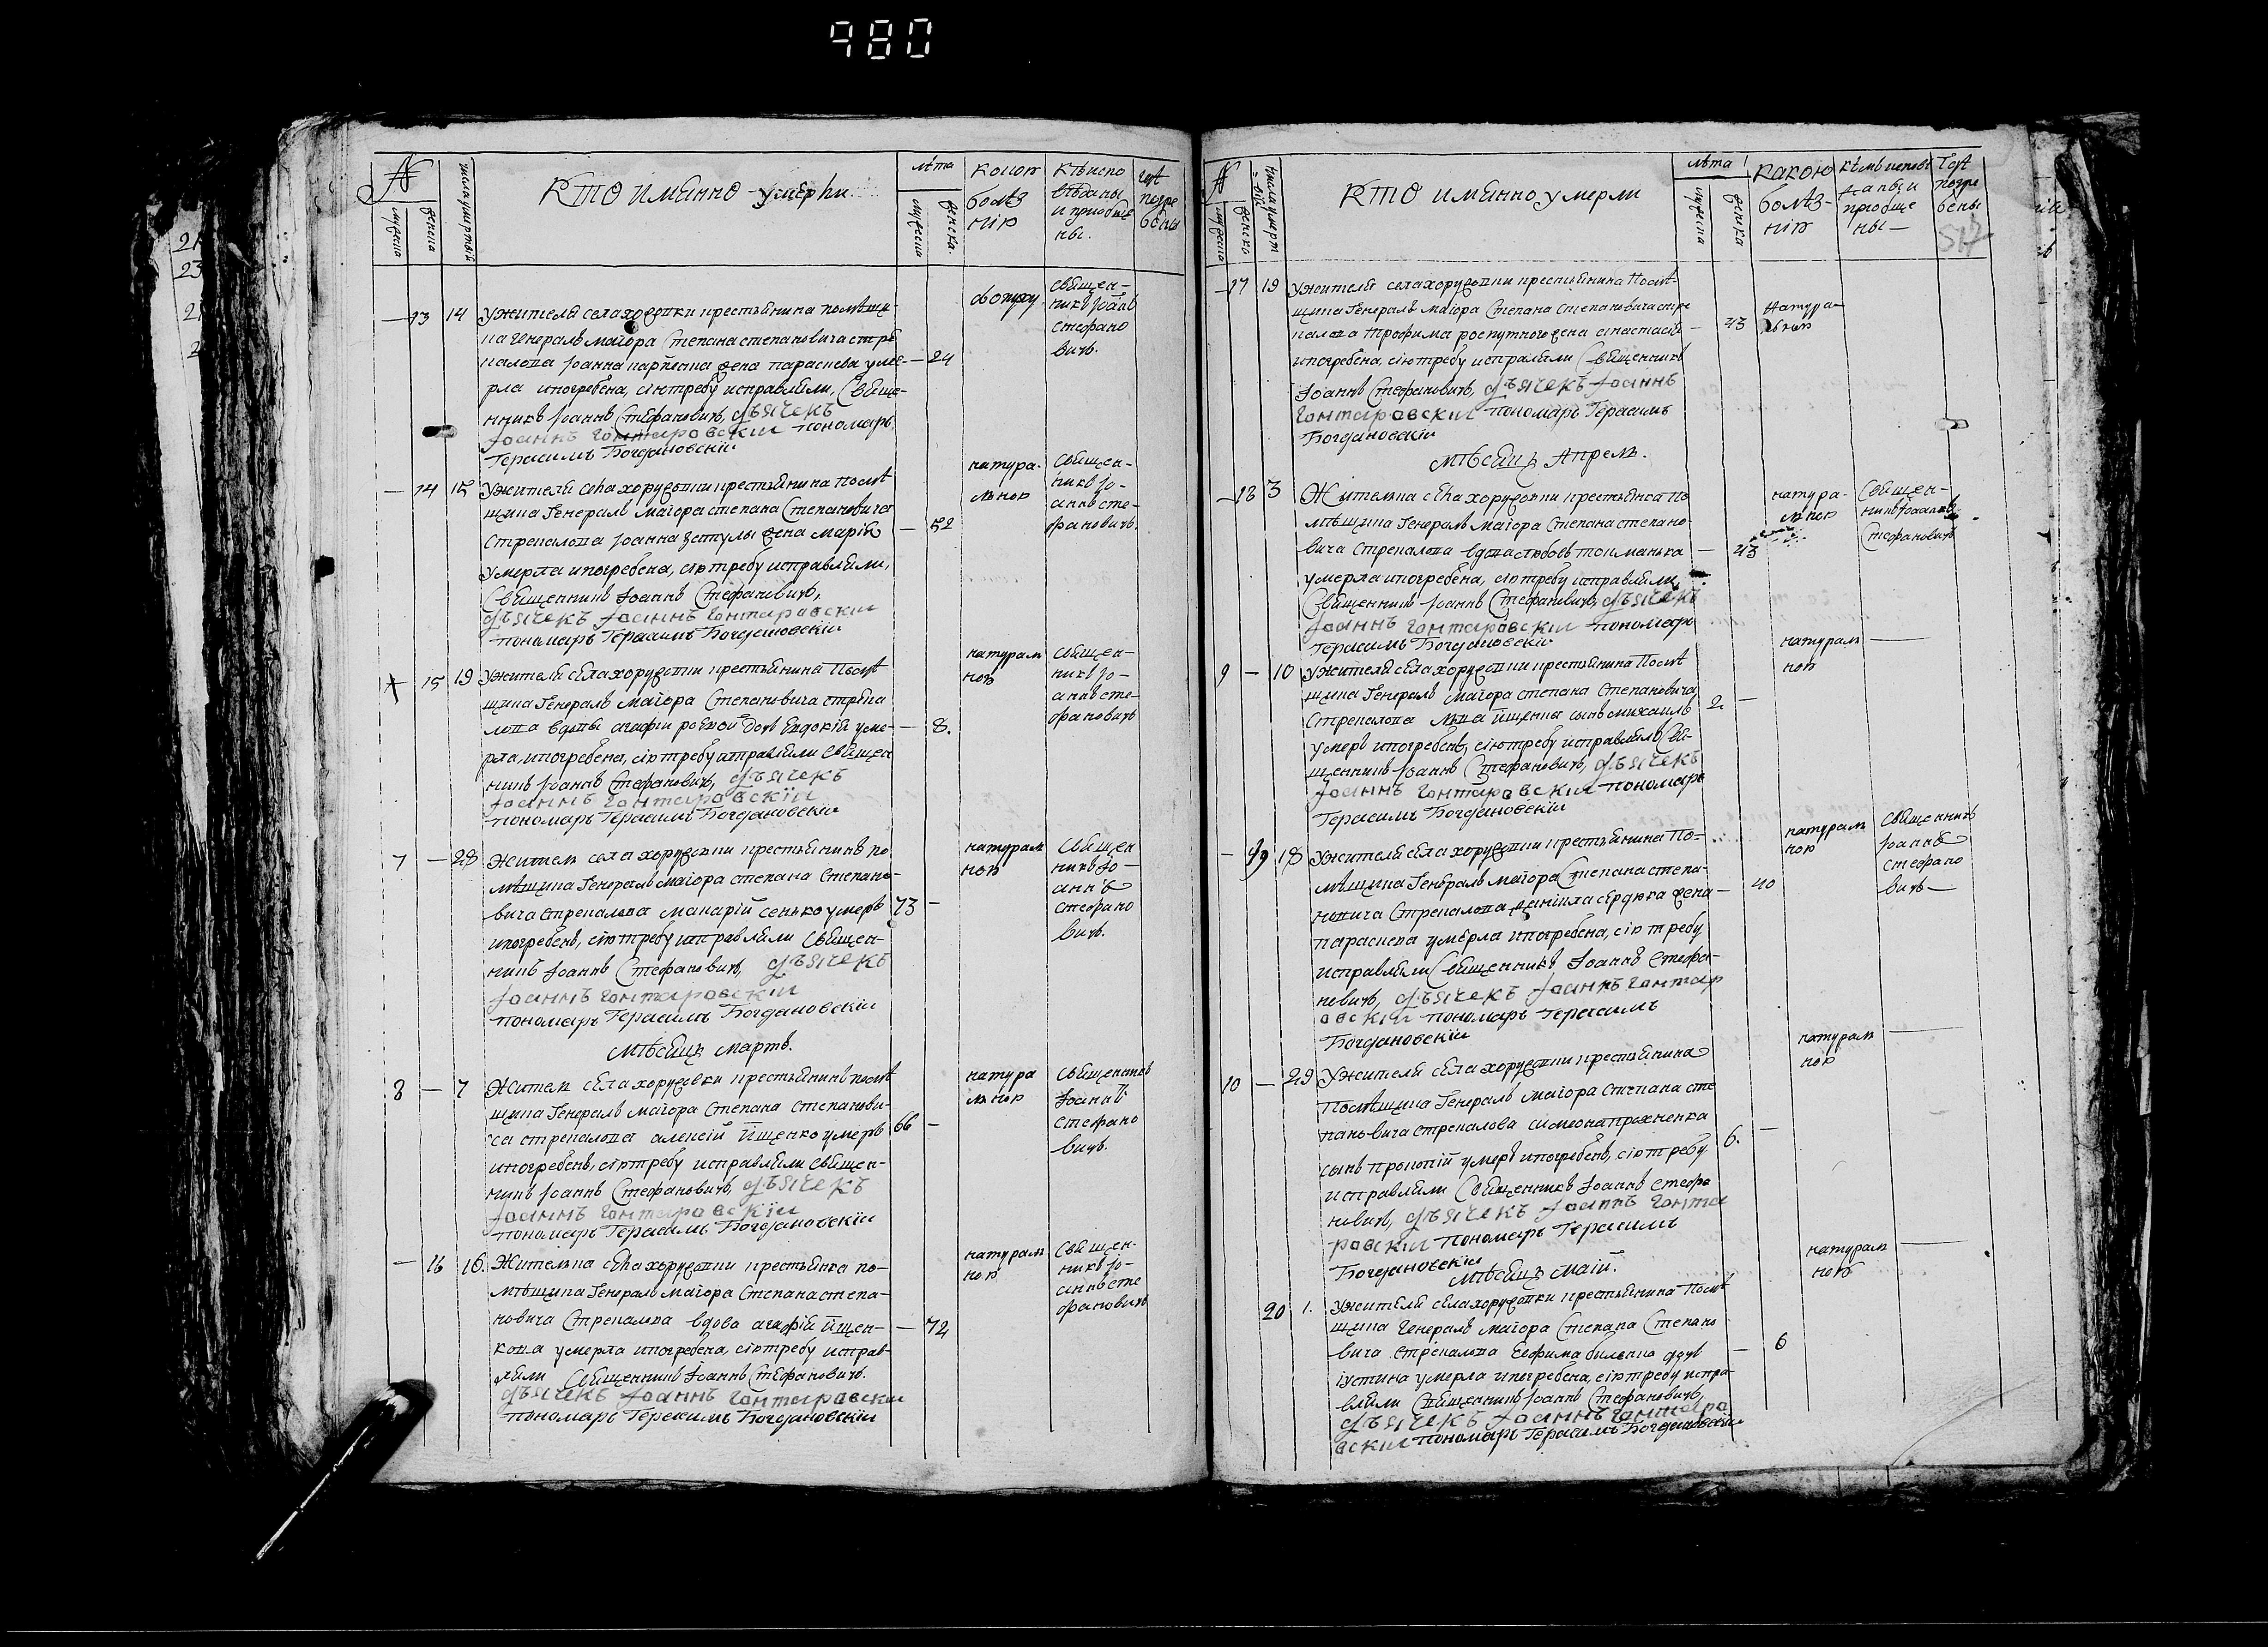 980
№
мужеска
женска
числа умертвій
Кто именно умерли
лѣта
мужеска
женска.
какою
болѣз
нію
Кѣм испо
вѣданы
и приобще
ны.
Где
погре
бены
13 14 Ужителя села хоружовки крестьянина помѣщи-
ка генералъ маіора Степана степановича стре
калова Іоанна жена параскева уме- — 24
рла ипогребена, сію требу исправляли, Свяще-
нникъ Іоаннъ Стефановичъ, дьячекъ
Іоаннъ Гонтаровскіи пономарь
Герасимъ Богдановскіи
Священ-
никъ Іоаннъ
стефано
вичъ.
— 14 15 Ужителя села хоружовки крестьянина Помѣ
щика Генералъ маіора степана Степановича
Стрекалова Іоанна жена Марія — 52
умерла ипогребена, сію требу исправляли,
Священникъ Іоаннъ Стефановичъ,
дьячекъ Іоаннъ Гонтаровскіи
пономарь Герасимъ Богдановскіи
натура-
льною
Священ-
никъ Іо-
аннъ сте-
фановичъ.
15 19 Ужителя села хоружовки крестьянина Помѣ
щика Генералъ маіора Степановича стрека
лова вдовы агафіи дочь Евдокія уме- — 8.
рла, ипогребена, сію требу исправляли Священ
никъ Іоаннъ Стефановичъ, дьячекъ
Іоаннъ Гонтаровскіи
пономарь Герасимъ Богдановскіи
натураль
ною
Священ-
никъ Іо-
аннъ сте-
фановичъ
7 — 28 Житель села хоружовки крестьянинъ по
мѣщика Генералъ маіора степана Степано-
вича стрекалова макарій сенько умеръ 73 —
ипогребенъ, сію требу исправляли Священ-
никъ Іоаннъ Стефановичъ, дьячекъ
Іоаннъ Гонтаровскіи
пономарь Герасимъ Богдановскіи
натураль
ною
Священ
никъ Іо-
аннъ
стефано
вичъ.
Мѣсяцъ мартъ.
8 — 7 Житель села хоружовки крестьянинъ помѣ
щика Генералъ маіора Степана степанови-
ча стрекалова алексій Йщенко умеръ 66 —
ипогребенъ, сію требу исправляли Священ-
никъ Іоаннъ Стефановичъ, дьячекъ
Іоаннъ Гонтаровскіи
пономарь Герасимъ Богдановскіи
натура
льною
Священникъ
Іоаннъ
стефано
вичъ.
— 16 16. Жителька села хоружовки крестьянка по-
мѣщика Генералъ маіора Степана степа-
новича Стрекалова вдова агафія йщен- — 72
кова умерла ипогребена, сію требу исправ-
ляли Священникъ Іоаннъ Стефановичъ.
дьячекъ Іоаннъ Гонтаровскіи
пономарь Герасимъ Богдановскіи
натураль
ною
Священ-
никъ Іо-
аннъ сте
фановичъ
№
мужеска
женска
Кто именно умерли
лѣта
мужеска
женска
какою
болѣз-
нію
кѣмъ исповѣ
даны и
приобще
ны —
Где
погре
бены
517
— 17 19 Ужителя села хоружовки крестьянина Помѣ-
щика Генералъ маіора Степана Степановича стре
калова Трофима жена анастасія — 43
ипогребена, сію требу исправляли Священникъ
Іоаннъ Стефановичъ, дьячекъ Іоаннъ
Гонтаровскіи пономарь Герасимъ
Богдановскіи
Натура-
льною
Мѣсяцъ Апрель.
— 18 3 Жителька села хоружовки крестьянка По
мѣщика Генералъ маіора Степана степано-
вича Стрекалова вдова — 43
умерла ипогребена, сію требу исправляли
Священникъ Іоаннъ Стефановичъ, дьячекъ
Іоаннъ Гонтаровскіи пономарь
Герасимъ Богдановскіи
натура-
льною
Священ-
никъ Іоаннъ
Стефановичъ
9 — 10 Ужителя села хоружовки крестьянина Помѣ
щика Генералъ маіора степана Степановича
Стрекалова йщенка сынъ михаилъ 2. —
умеръ ипогребенъ, сію требу исправляли Свя-
щенникъ Іоаннъ Стефановичъ, дьячекъ
Іоаннъ Гонтаровскіи пономарь
Герасимъ Богдановскіи
натураль
ною
— 19 18 Ужителя села хоружовки крестьянина По-
мѣщика Генералъ маіора Степана степа-
новича Стрекалова даніила сердюка жена — 40
параскева умерла ипогребена, сію требу
исправляли Священникъ Іоаннъ Стефа-
новичъ, дьячекъ Іоаннъ Гонтар
овскіи пономарь Герасимъ
Богдановскіи
натураль
ною
Священникъ
Іоаннъ
стефано
вичъ —
10 — 29 Ужителя села хоружовки крестьянина
Помѣщика Генералъ маіора Степана сте
пановича стрекалова симеона прахненка 6. —
сынъ прокопій умеръ ипогребенъ, сію требу
исправляли Священникъ Іоаннъ Стефа
новичъ, дьячекъ Іоаннъ Гонта
ровскіи пономарь Герасимъ
Богдановскіи
натураль
ною
Мѣсяцъ Маій.
20 1. Ужителя села хоружовки крестьянина Помѣ
щика Генералъ маіора Степана Степано
вича стрекалова Евфима дочь — 6
іустина умерла ипогребена, сію требу испра-
вляли Священникъ Іоаннъ Стефановичъ,
дьячекъ Іоаннъ Гонтаро
вскіи пономарь Герасимъ Богдановскіи
натураль
ною